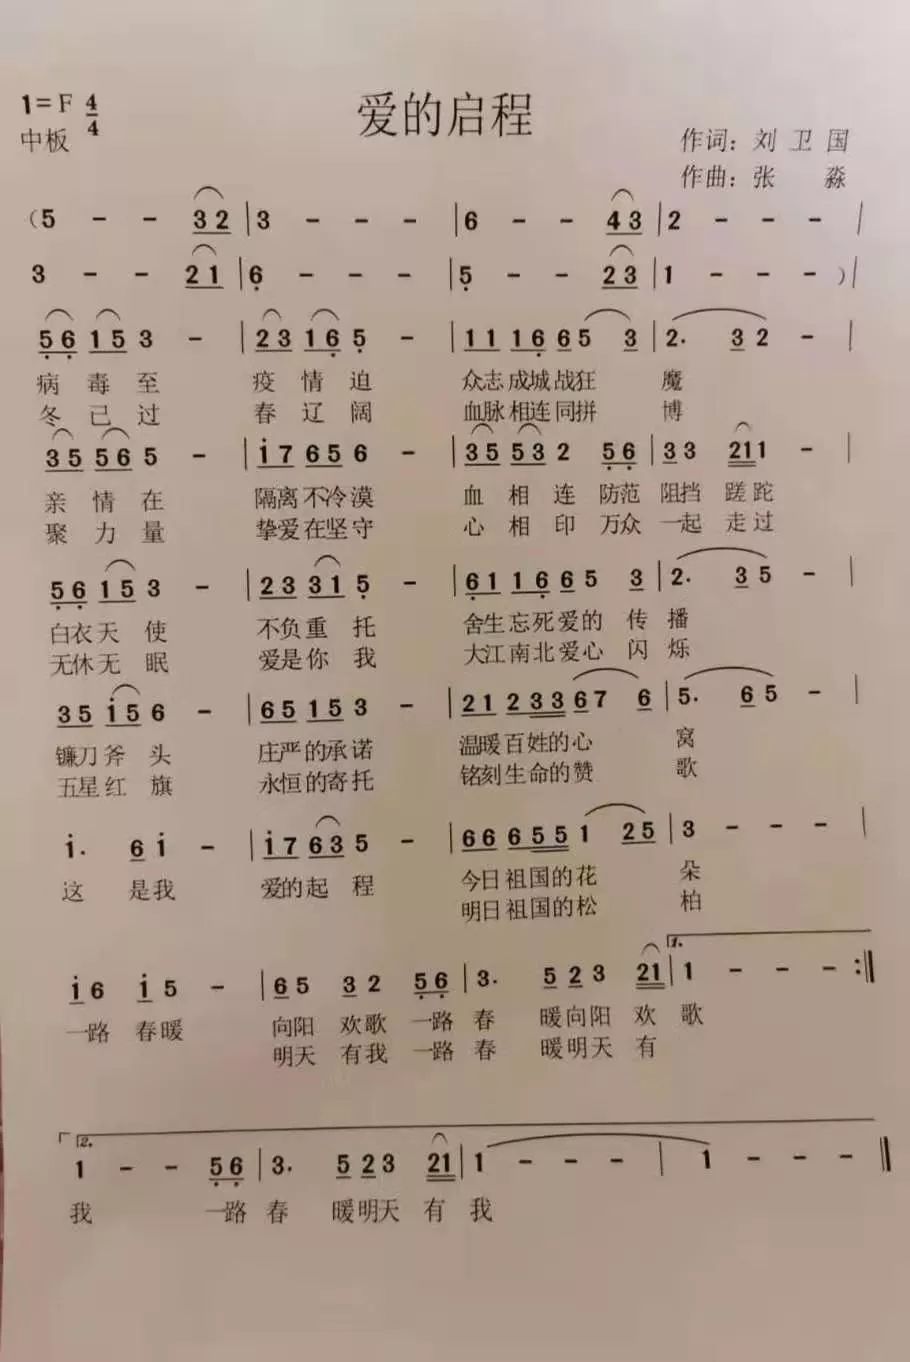 爱的启程
1=F 4/4
中板
作词：刘卫国
作曲：张 淼
(5 - - 32 | 3 - - - | 6 - - 43 | 2 - - - |
3 - - 21 | 6 - - - | 5 - - 23 | 1 - - - ) |
56 15 3 - | 23 16 5 - | 11 16 65 3 | 2. 32 - |
病毒至 疫情迫 众志成城战狂 魔
冬已过 春辽阔 血脉相连同拼 博
35 56 5 - | i7 65 6 - | 35 53 2 56 | 33 211 - |
亲情在 隔离不冷漠 血相连 防范 阻挡 蹉跎
聚力量 挚爱在坚守 心相印 万众 一起 走过
56 15 3 - | 23 31 5 - | 61 16 65 3 | 2. 35 - |
白衣天使 不负重托 舍生忘死爱的 传播
无休无眠 爱是你我 大江南北爱心 闪烁
35 i5 6 - | 65 15 3 - | 21 233 67 6 | 5. 65 - |
镰刀斧头 庄严的承诺 温暖百姓的心 窝
五星红旗 永恒的寄托 铭刻生命的赞 歌
i. 6i - | i7 63 5 - | 66 655 1 25 | 3 - - - |
这 是我 爱的起程 今日祖国的花 朵
明日祖国的松 柏
i6 i5 - | 65 32 56 | 3. 523 21 | 1. 1 - - - :||
一路 春暖 向阳 欢歌 一路 春 暖向阳 欢 歌
明天 有我 一路 春 暖明天 有
2. 1 - - 56 | 3. 523 21 | 1 - - - | 1 - - - ||
我 一路 春 暖明天 有 我